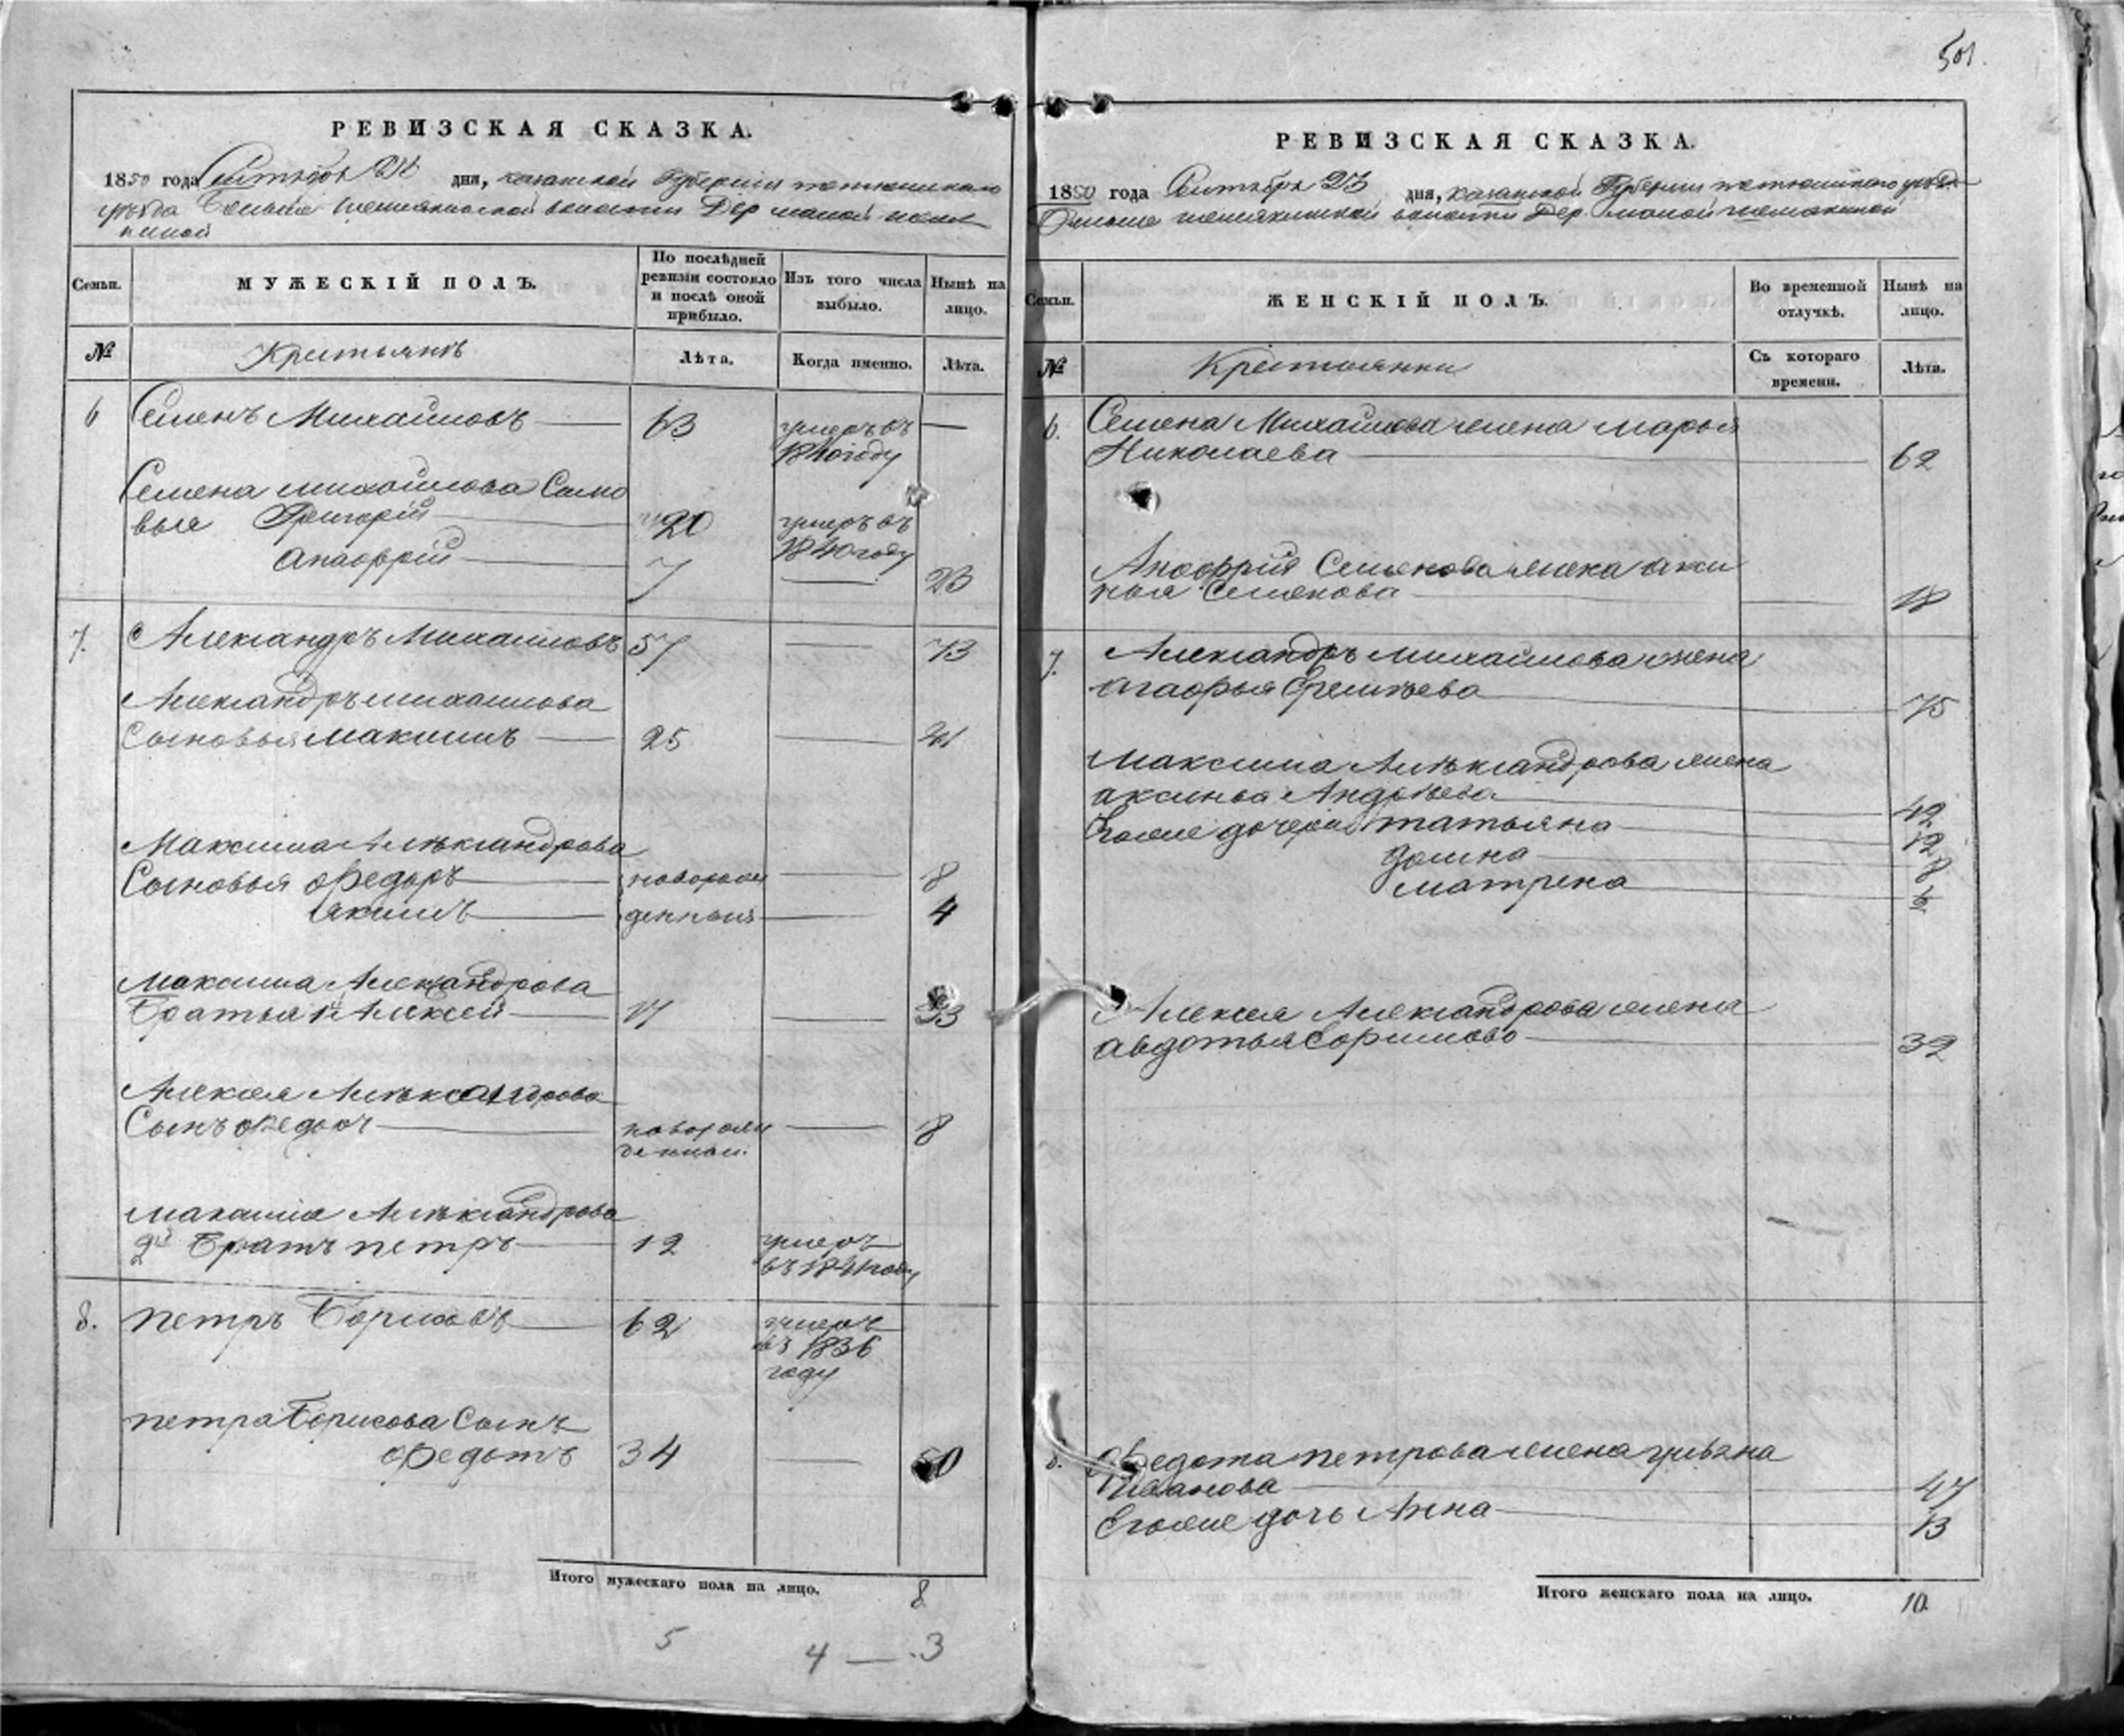 501.
РЕВИЗСКАЯ СКАЗКА.
1850 года Сентября дня, казанской Губерніи тетюшскаго
уѣзда Больше шемякинской волости Дер малой шемя
киной
Семьи. МУЖЕСКІЙ ПОЛЪ. По послѣдней ревизіи состояло и послѣ оной прибыло. Изъ того числа выбыло. Нынѣ на лицо.
№ Крестьянъ Лѣта. Когда именно. Лѣта.
6 Семенъ Михайловъ 63 умеръ въ —
1840 году
Семена михайлова Сыно
вья Григорій 20 умеръ въ
1840 году
Анофрій 7 — 23
7. Александръ Михайловъ 57 — 73
Александръ михайлова
Сыновья Максимъ 25 — 41
Максима Алѣксандрова
Сыновья Федоръ новорож — 8
Якимъ денныя — 4
Максима Александрова
Братья 1й Алексей 17 — 33
Алексея Алѣксандрова
Сынъ Федотъ новорож — 8
денной.
Максима Алѣксандрова
2й Братъ петръ 12 умеръ
въ 1841 году
8. петръ Борисовъ 62 умеръ
въ 1836
году
петра Борисова Сынъ
Федотъ 34 — 50
Итого мужескаго пола на лицо. 8
5 4 — 3
РЕВИЗСКАЯ СКАЗКА.
1850 года Сентября 23 дня, казанской Губерніи тетюшскаго уѣзда
Больше шемякинской волости Дер. малой шемякиной
Семьи. ЖЕНСКІЙ ПОЛЪ. Во временной отлучкѣ. Нынѣ на лицо.
№ Крестьянки Съ котораго времени. Лѣта.
6. Семена Михайлова жена марья
Николаева 62
Анофрія Семенова жена акси
нья Семенова 18
7. Александръ михайлова жена
агафья Еремѣева 75
Максима Алѣксандрова жена
аксинья Андрѣева 42
Егоже дочери татьяна 12
домна 8
матрена 6
Алексея Александрова жена
авдотья Ефимова 32
8. Федота петрова жена ульяна
Иванова 47
Егоже дочь Анна 13
Итого женскаго пола на лицо. 10.